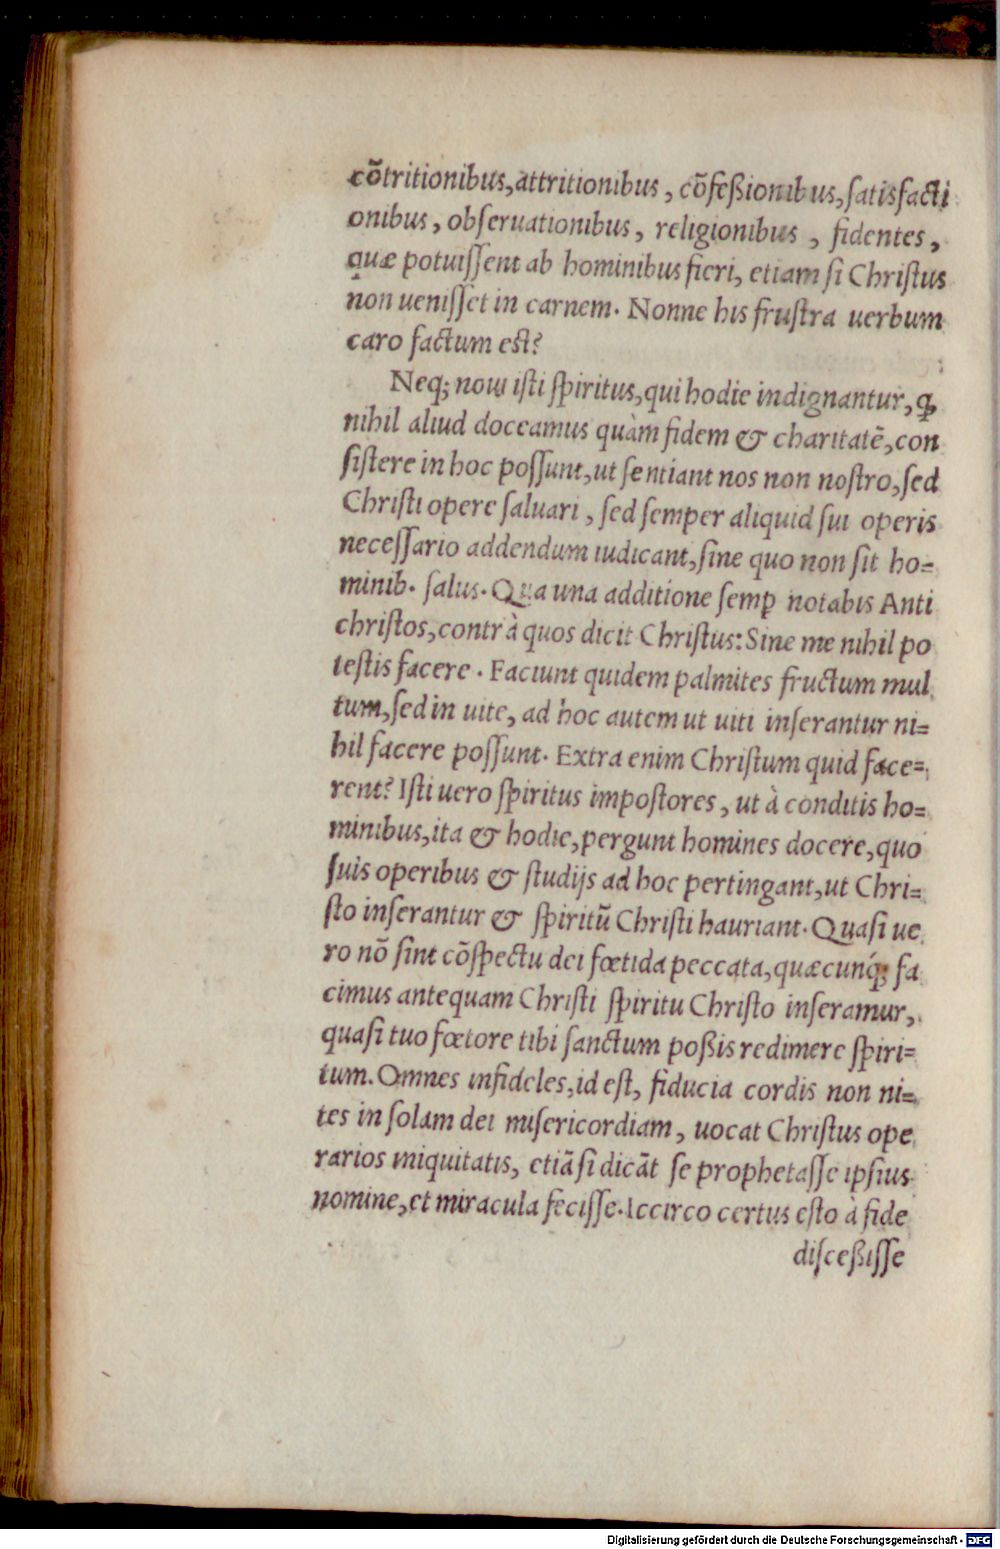 cõtritionibus, attritionibus, cõfeßionibus, ſatisfacti
onibus, obſeruationibus, religionibus, fidentes,
quæ potuiſſent ab hominibus fieri, etiam ſi Chriſtus
non ueniſſet in carnem. Nonne his fruſtra uerbum
caro factum eſt?
Neq; nouı iſti ſpiritus, qui hodie indignantur, ꝙ
nihil aliud doceamus quàm fidem & charitatẽ, con
ſiſtere in hoc poſſunt, ut ſentiant nos non noſtro, ſed
Chriſti opere ſaluari, ſed ſemper aliquid ſui operis
neceſſario addendum iudicant, ſine quo non ſit ho=
minib. ſalus. Qua una additione ſemꝑ notabis Anti
chriſtos, contrà quos dicit Chriſtus: Sine me nihil po
teſtis facere. Faciunt quidem palmites fructum mul
tum, ſed in uite, ad hoc autem ut uiti inſerantur ni=
hil facere poſſunt. Extra enim Chriſtum quid face=
rent? Iſti uero ſpiritus impoſtores, ut à conditis ho=
minibus, ita & hodie, pergunt homines docere, quo
ſuis operibus & ſtudijs ad hoc pertingant, ut Chri=
ſto inſerantur & ſpiritũ Chriſti hauriant. Quaſi ue
ro nõ ſint cõſpectu dei fœtida peccata, quæcunq́; fa
cimus antequam Chriſti ſpiritu Chriſto inſeramur,
quaſi tuo fœtore tibi ſanctum poßis redimere ſpiri=
tum. Omnes infideles, id eſt, fiducia cordis non ni=
tes in ſolam dei miſericordiam, uocat Chriſtus ope
rarios iniquitatis, etiã ſi dicãt ſe prophetaſſe ipſius
nomine, et miracula feciſſe. Iccirco certus eſto à fide
diſceßiſſe
Digitalisierung gefördert durch die Deutsche Forschungsgemeinschaft - DFG